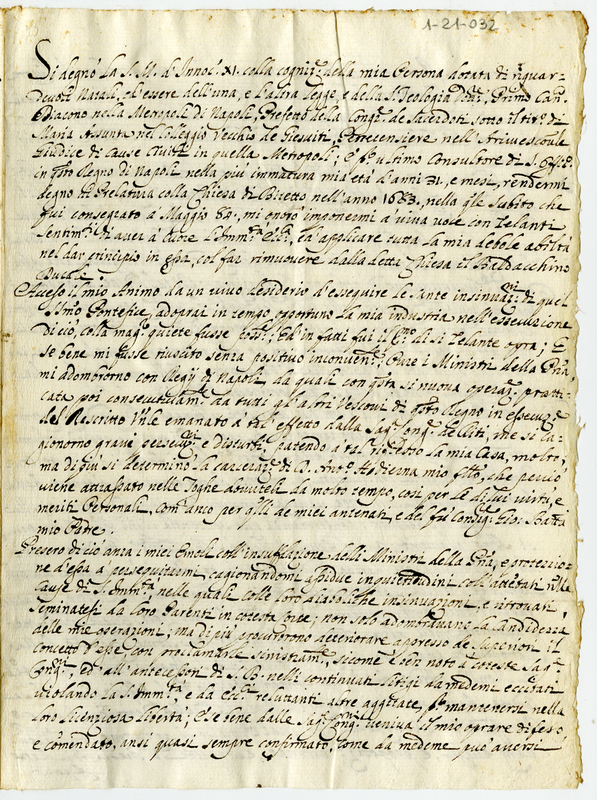 1-21-032
Si degnò la S. M. d'Innoc. XI. colla cogniz.e della mia Persona dotata di riguar-
devoli Natali, ed'essere dell'una, e l'altra legge e della S. Teologia Primo Can.
Diacono nella Metropoli di Napoli, Prefetto della Cong.e de Sacerdoti sotto il tit.o di
Maria Assunta nel Colleggio Vecchio de Giesuiti,
Giudice di Cause Civili in quella Metropoli; E ultimo Consultore di S. Off.o
in q.sto Regno di Napoli nella più immatura mia età d'anni 31, e mesi, rendermi
degno di Prelatura colla Chiesa di Bitetto nell'anno 1683, nella q.le subito che
fui consegrato a Maggio 84, mi onorò impormi à viva voce con Zelanti
sentim.ti di aver à cuore l'Imm.tà Eccl.a, ed'applicare tutta la mia debole abiltà
nel dar principio in essa, col far rimuovere dalla detta Chiesa il Baldacchino
Ducale.
Acceso il mio Animo da un vivo desiderio d'esseguire le sante insinuaz.ni di quel
S.mo Pontefice, adoprai in tempo opportuno la mia industria nell'essecuzione
di ciò colla mag.r quiete fusse ; Ed in fatti fui il P.mo di si Zelante opra; E
se bene mi fusse riuscito senza positivo inconven.te Pure i Ministri della
mi con Reggij di Napoli da quali con q.sta si nuova operaz. pratti-
cata poi da tutti gl'altri Vescovi di q.sto Regno in essecuz.e
del Rescritto V'le emanato a tal'effetto dalla Sag.a Cong.e de Riti, me si ca-
gionorno gravi e disturbi, patendo a tal la mia Casa, molto,
ma di più si determinò la carceraz.e di D. Hodierna mio f.llo, che perciò
viene attrassato nelle Toghe dovuteli da molto tempo, così per le di lui virtù, e
meriti Personali, com'anco per q.lli de miei antenati, e del fù Consig.r Gio: Batta
mio Padre.
Presero di ciò anza i miei Emoli coll'insufflazione delli Ministri della e protezio-
ne d'essa a perseguitarmi, cagionandomi assidue inquietitudini coll'attentati nelle
cause di S. Imm.tà, nelle quali colle loro diaboliche insinuazioni, e ritrovati
seminatesi da loro Parenti in cotesta Corte; non solo la candidezza
delle mie operazioni; ma di più deteriorare appresso de Superiori il
concetto d'esse, con proclamarle sinistram.te, siccome è ben noto a coteste Sag.e
Cong.ni, ed'all'antecessori di S. B. nelli continuati litigi da medemi eccitati
violando la S. Imm.tà, e da Eccl.ci reluttanti altre aggitate, p. mantenersi nella
loro licenziosa libertà; E se bene dalle Sag.e Cong.ni veniva il mio oprare difeso
e comendato, ansi quasi sempre confirmato, come da medeme può aversi